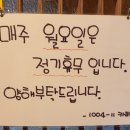 매주 월요일은
정기휴무 입니다.
양해부탁드립니다
-1004-